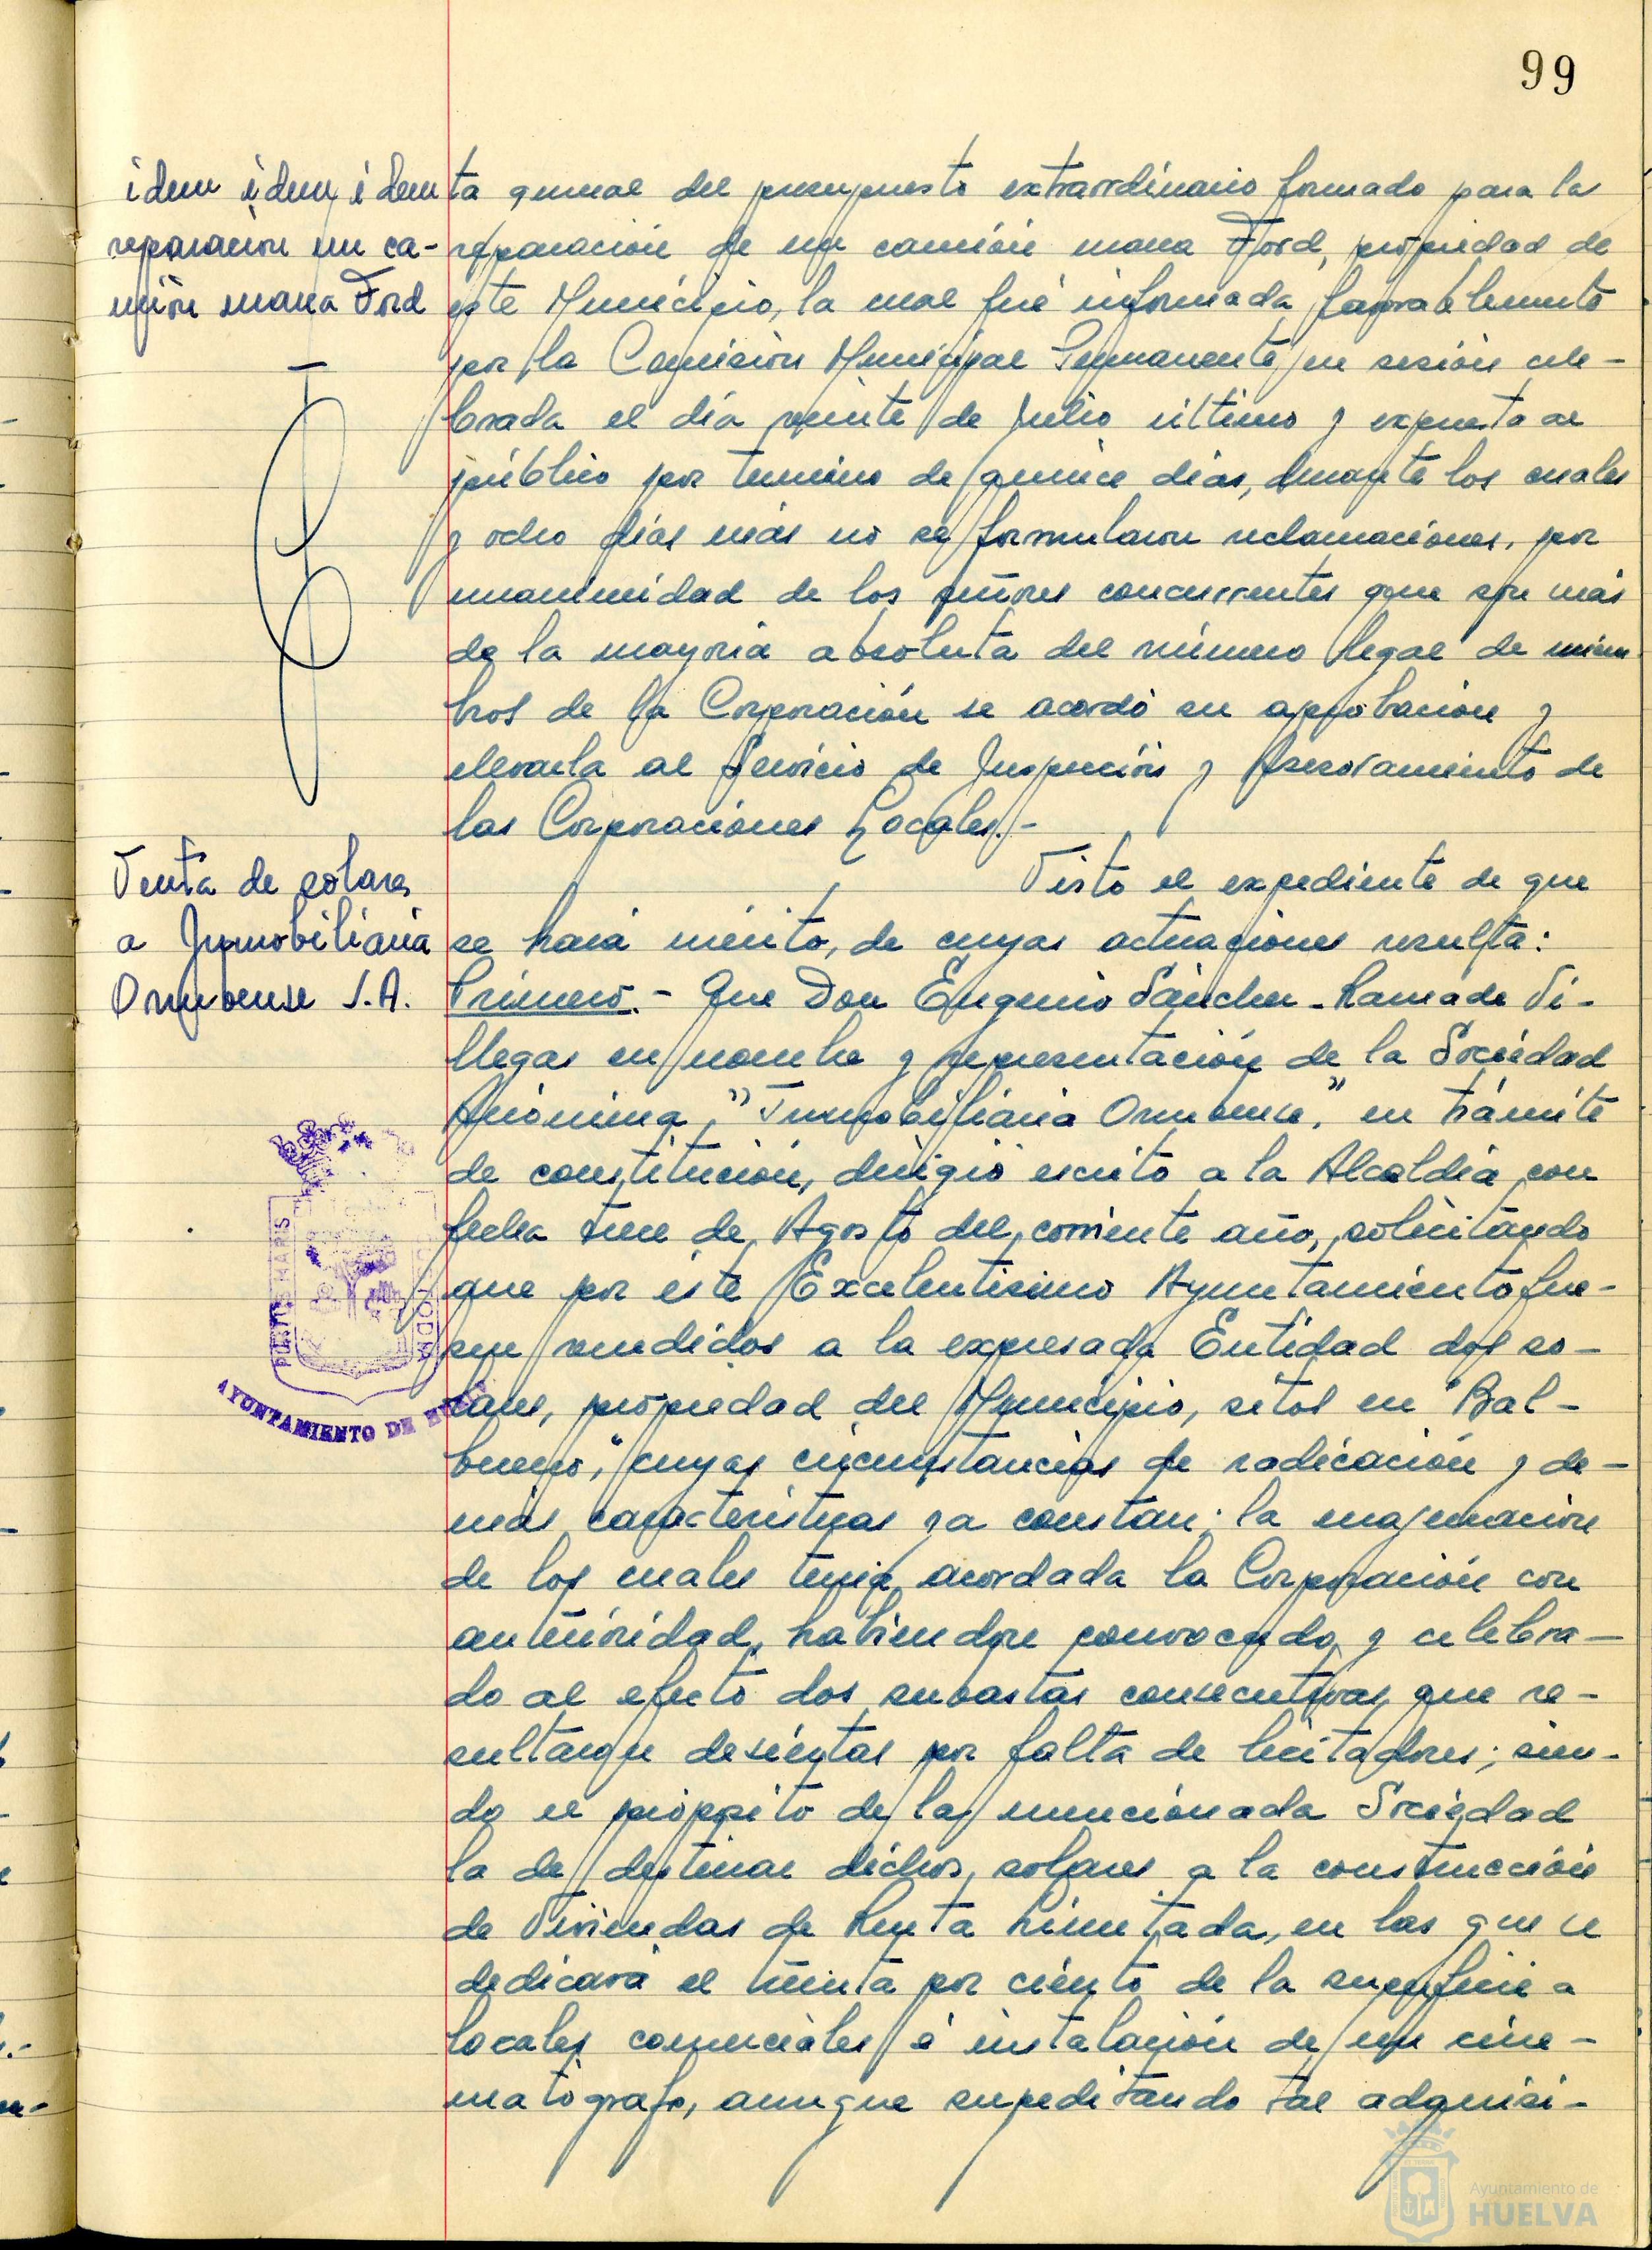 99
idem idem idem
reparación un ca-
mión marca Ford
ta general del presupuesto extraordinario formado para la
reparación de un camión marca Ford, propiedad de
este Municipio, la cual fué informada favorablemente
por la Comisión Municipal Permanente en sesión cele-
brada el día veinte de Julio último y expuesta al
público por termino de quince días, durante los cuales
y ocho días más no se formularon reclamaciones, por
unanimidad de los señores concurrentes que son más
de la mayoria absoluta del número legal de miem
bros de la Corporación se acordó su aprobación y
elevarla al Servicio de Inspección y Asesoramiento de
las Corporaciones Locales.-
Venta de solares
a Inmobiliaria
Onubense S.A.
Visto el expediente de que
se hará mérito, de cuyas actuaciones resulta:
Primero.- Que Don Eugenio Sánchez-Ramade Vi-
llegas en nombre y representación de la Sociedad
Anónima, "Inmobiliaria Onubense," en trámite
de constitución, dirigió escrito a la Alcaldía con
fecha trece de Agosto del corriente año, solicitando
que por éste Excelentísimo Ayuntamiento fue-
sen vendidos a la expresada Entidad dos so-
lares, propiedad del Municipio, sitos en "Bal-
bueno," cuyas circunstancias de radicación y de-
más características ya constan; la enajenación
de los cuales tenia acordada la Corporación con
anterioridad, habiendose convocado y celebra-
do al efecto dos subastas consecutivas que re-
sultaron desiertas por falta de licitadores; sien-
do el propósito de la mencionada Sociedad
la de destinar dichos solares a la construcción
de Viviendas de Renta Limitada, en las que se
dedicará el treinta por ciento de la superficie a
locales comerciales é instalación de un cine-
matógrafo, aunque supeditando tal adquisi-
PORTUS MARIS
AYUNTAMIENTO DE HUELVA
Ayuntamiento de
HUELVA